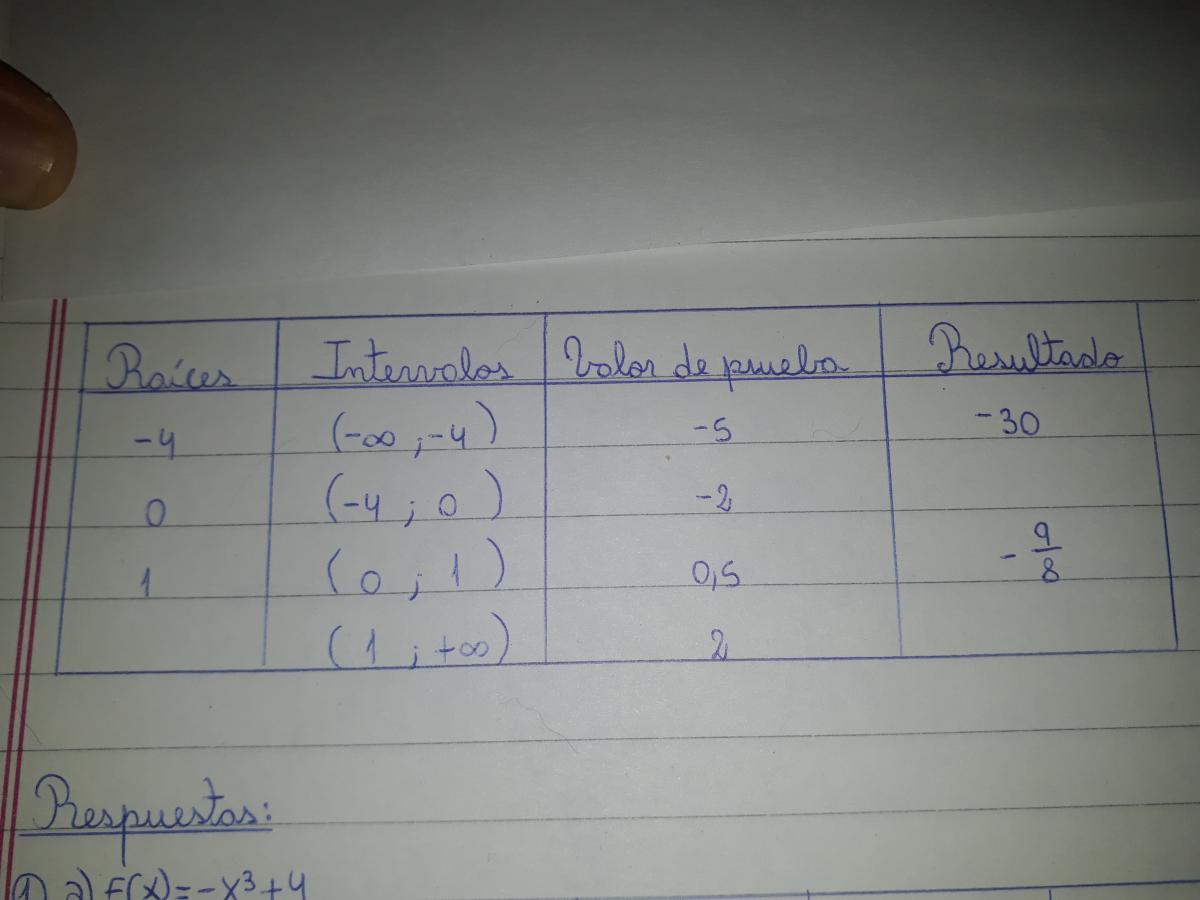 Raíces Intervalos Valor de prueba Resultado
-4 (-∞ ; -4) -5 -30
0 (-4 ; 0) -2
1 (0 ; 1) 0,5 -9/8
(1 ; +∞) 2
Respuestas:
1) a) F(x)=-x³+4